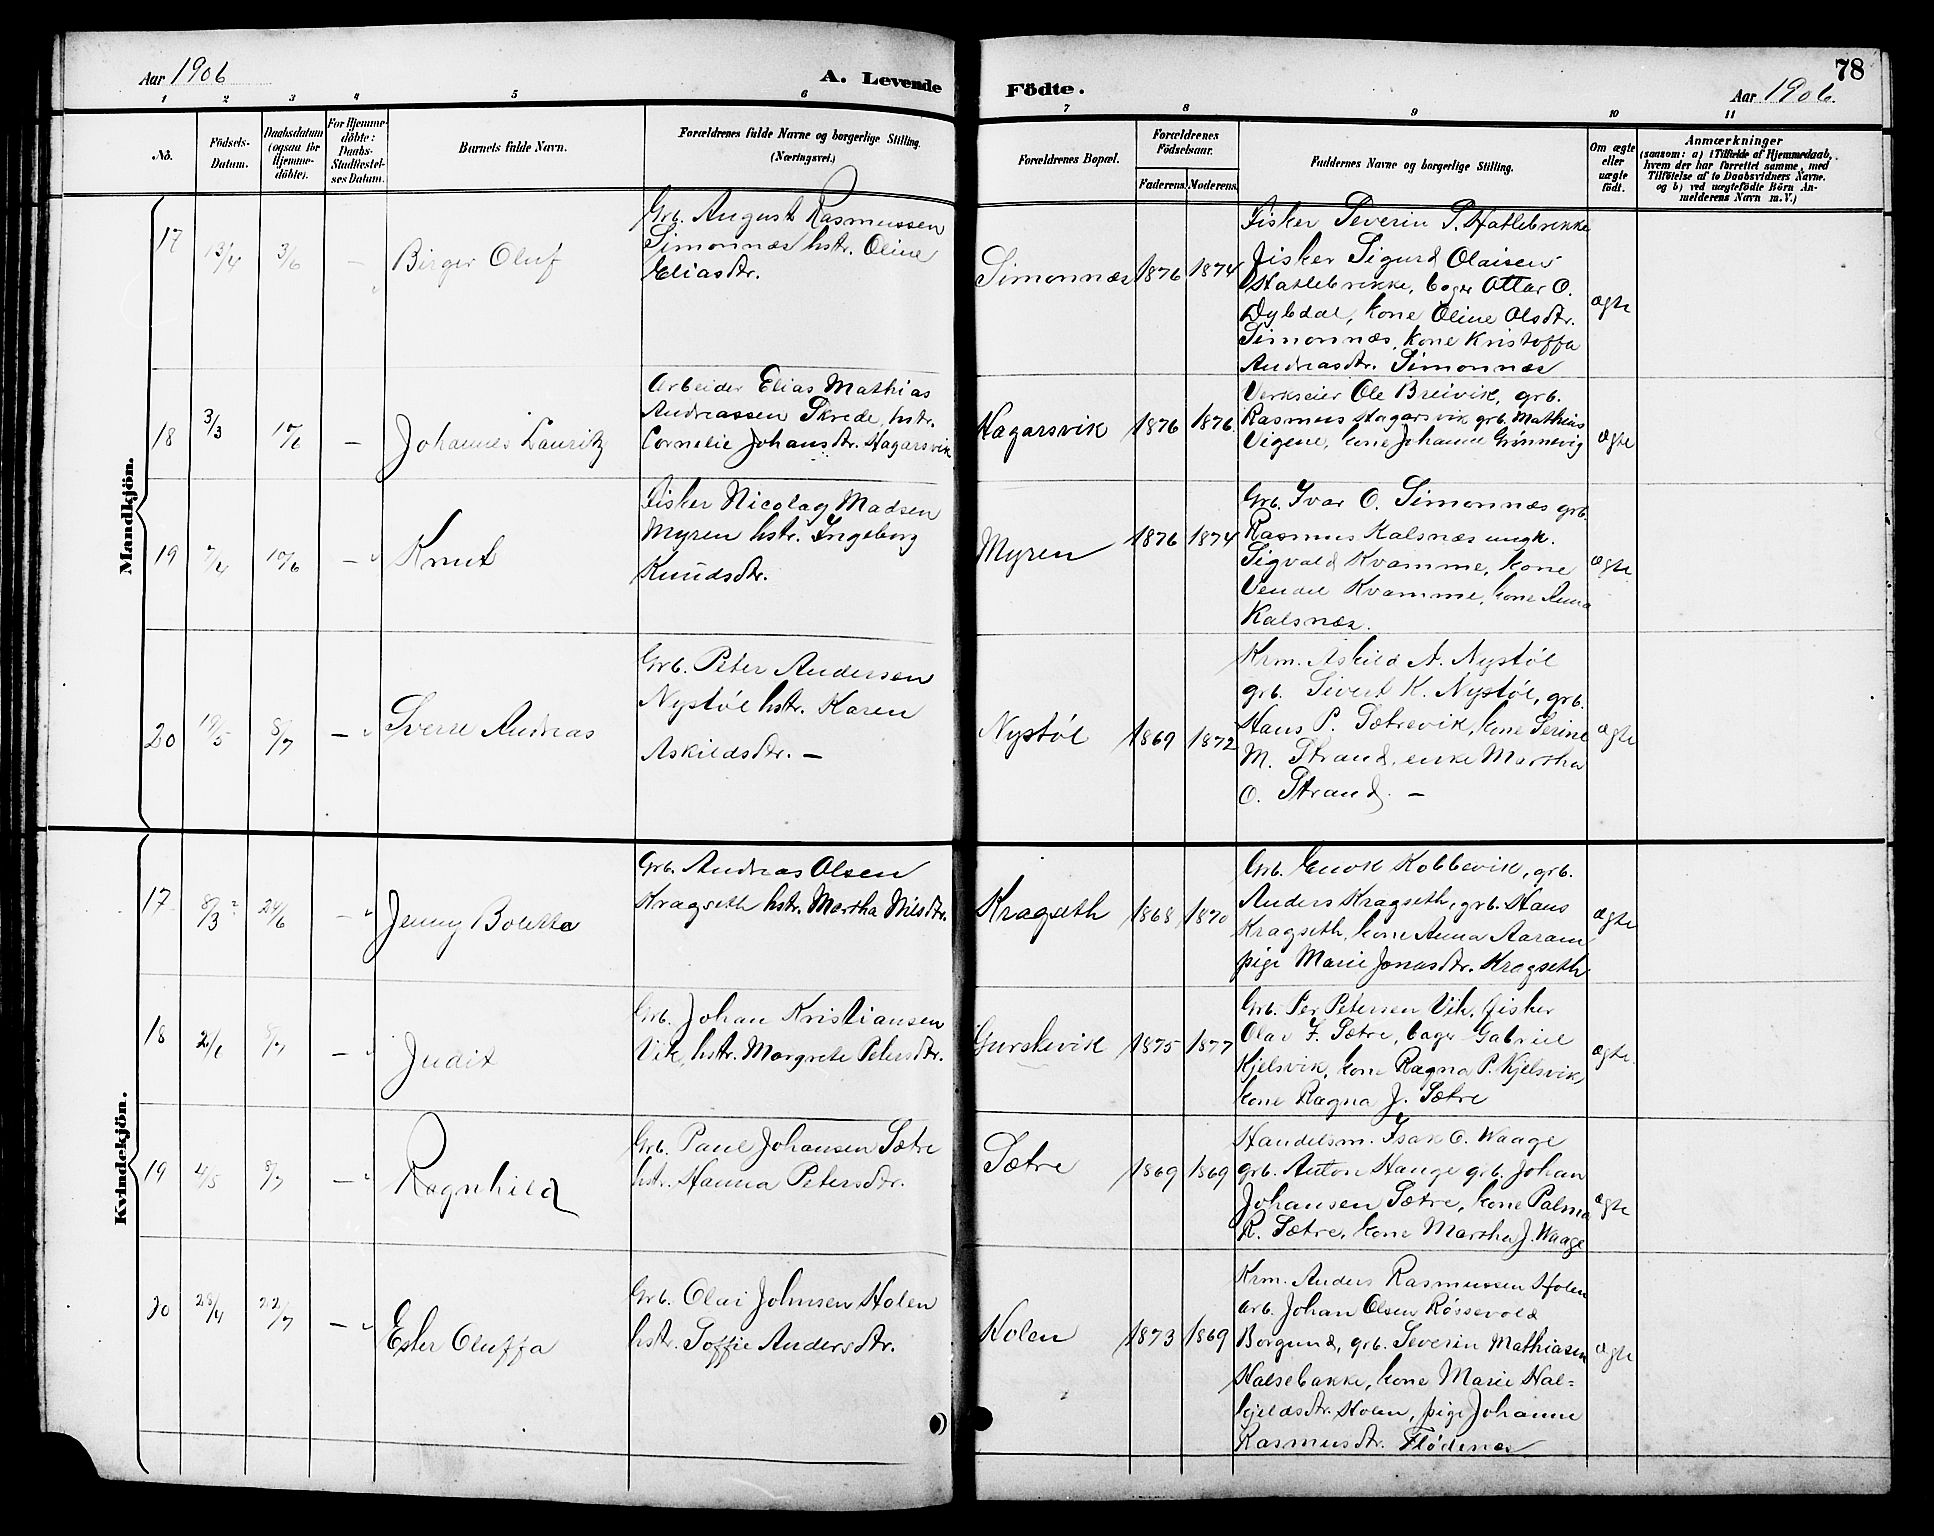 Aar 1906
A. Levende
1 2 3 4 5 6
No.
Födsels-
Datum.
Daabsdatum
(ogsaa for
Hjemme-
döbte).
For Hjemme-
döbte:
Daabs-
Stadfæstel-
ses Datum.
Barnets fulde Navn.
Forældrenes fulde Navne og borgerlige Stilling.
(Næringsvei.)
Mandkjön.
17 13/4 3/6 —
Birger Oluf
Grb. August Rasmussen
Simonnæs hstr. Oline
Eliasdtr.
18 3/3 17/6 —
Johannes Lauritz
Arbeider Elias Mathias
Andreassen Skrede, hstr.
Cornelie Johansdtr. Hagarsvik
19 7/4 17/6 —
Knut
Fisker Nicolag Madsen
Myren hstr. Ingeborg
Knudsdtr.
20 19/5 8/7 —
Sverre Andreas
Grb. Peter Andersen
Nystøl hstr. Karen
Askildsdtr. —
Kvindekjön.
17 8/3 24/6 —
Jenny Boletta
Grb. Andreas Olsen
Kragseth hstr. Martha Nilsdtr.
18 2/6 8/7 —
Judit
Grb. Johan Kristiansen
Vik, hstr. Margrete Petersdtr.
19 4/5 8/7 —
Ragnhild
Grb. Paul Johansen Sætre
hstr. Hanna Petersdtr.
20 23/4 22/7 —
Ester Oluffa
Grb. Olai Johnsen Holen
hstr. Soffie Andersdtr.
78
Födte.
Aar 1906.
7 8 9 10 11
Forældrenes Bopæl.
Forældrenes
Födselsaar.
Faderens. Moderens.
Faddernes Navne og borgerlige Stilling.
Om ægte
eller
uægte
födt.
Anmærkninger
(saasom: a) i Tilfælde af Hjemmedaab,
hvem der har forrettet samme, med
Tilföielse af to Daabsvidners Navne.
og b) ved uægtefödte Börn An-
melderens Navn m. V.)
Simonnæs 1876 1874
Fisker Severin P. Hatlebrekke
Fisker Sigurd Olaisen
Hatlebrekke, bager Ottar O.
Dybdal, kone Oline Olsdtr.
Simonnæs, kone Kristoffa
Andreasdtr. Simonnæs
ægte
Hagarsvik 1876 1876
Verkseier Ole Breivik, grb.
Rasmus Hagarsvik grb. Mathias
Vigene, kone Johanne Grønnevig
ægte
Myren 1876 1874
Grb. Ivar O. Simonnæs grb.
Rasmus Kalsnæs ungk.
Sigvald Kvamme, kone
Vendel Kvamme, kone Anna
Kalsnæs.
ægte
Nystøl 1869 1872
Krm. Askild A. Nystøl
grb. Sivert K. Nystøl, grb.
Hans P. Sætrevik, kone Serine
M. Strand, enke Martha
O. Strand. —
ægte
Kragseth 1868 1870
Grb. Enok Kobbevik, grb.
Anders Kragseth, grb. Hans
Kragseth, kone Anna Aaram
pige Marie Jonasdtr. Kragseth
ægte
Gurskevik 1875 1877
Grb. Per Petersen Vik, fisker
Olav J. Sætre, bager Gabriel
Kjelsvik, kone Ragna P. Kjelsvik,
kone Ragna J. Sætre
ægte
Sætre 1869 1869
Handelsm. Isak O. Waage
grb. Anton Hauge grb. Johan
Johansen Sætre, kone Palma
R. Sætre, kone Martha J. Waage
ægte
Holen 1873 1869
Krm. Anders Rasmussen Holen
arb. Johan Olsen Røssevold
Borgund, grb. Severin Mathiasen
Halsebakke, kone Marie Hal=
kjeldsdtr. Holen, pige Johanne
Rasmusdtr. Flødenæs
ægte